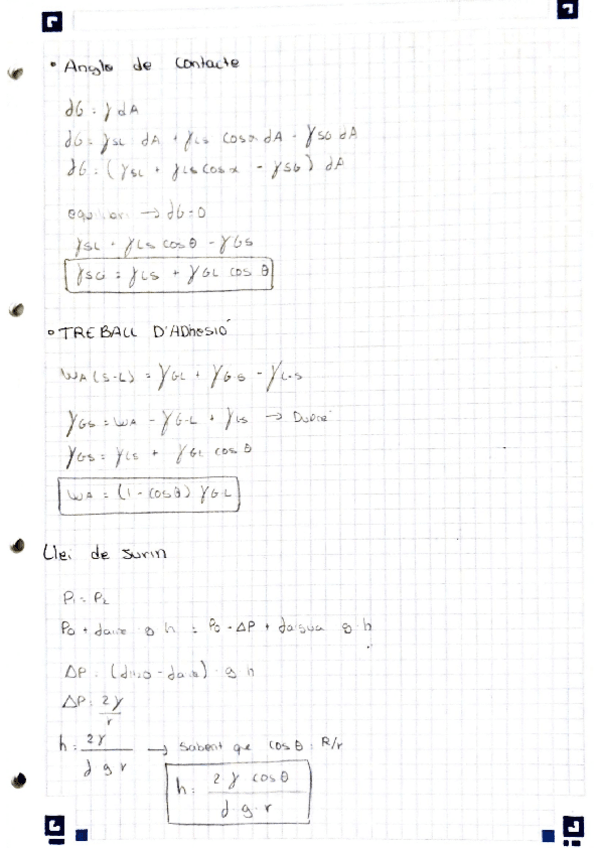 • Angle de contacte
dG = γ dA
dG = γSL dA + γLG cosα dA - γSG dA
dG = (γSL + γLG cosα - γSG) dA
equilibri → dG = 0
γSL + γLG cos θ - γGS
γSG = γLS + γGL cos θ
• TREBALL D'ADhesió
WA (S-L) = γGL + γG-S - γL-S
γGS = WA - γG-L + γLS → Dupré
γGS = γLS + γGL cos θ
WA = (1 - cosθ) γG-L
Llei de Jurin
P1 = P2
P0 + daire g h = P0 - ΔP + daigua g h
ΔP = (dH2O - daire) g h
ΔP = 2γ / r
h = 2γ / d g r → sabent que cos θ = R/r
h = 2·γ cosθ / d·g·r